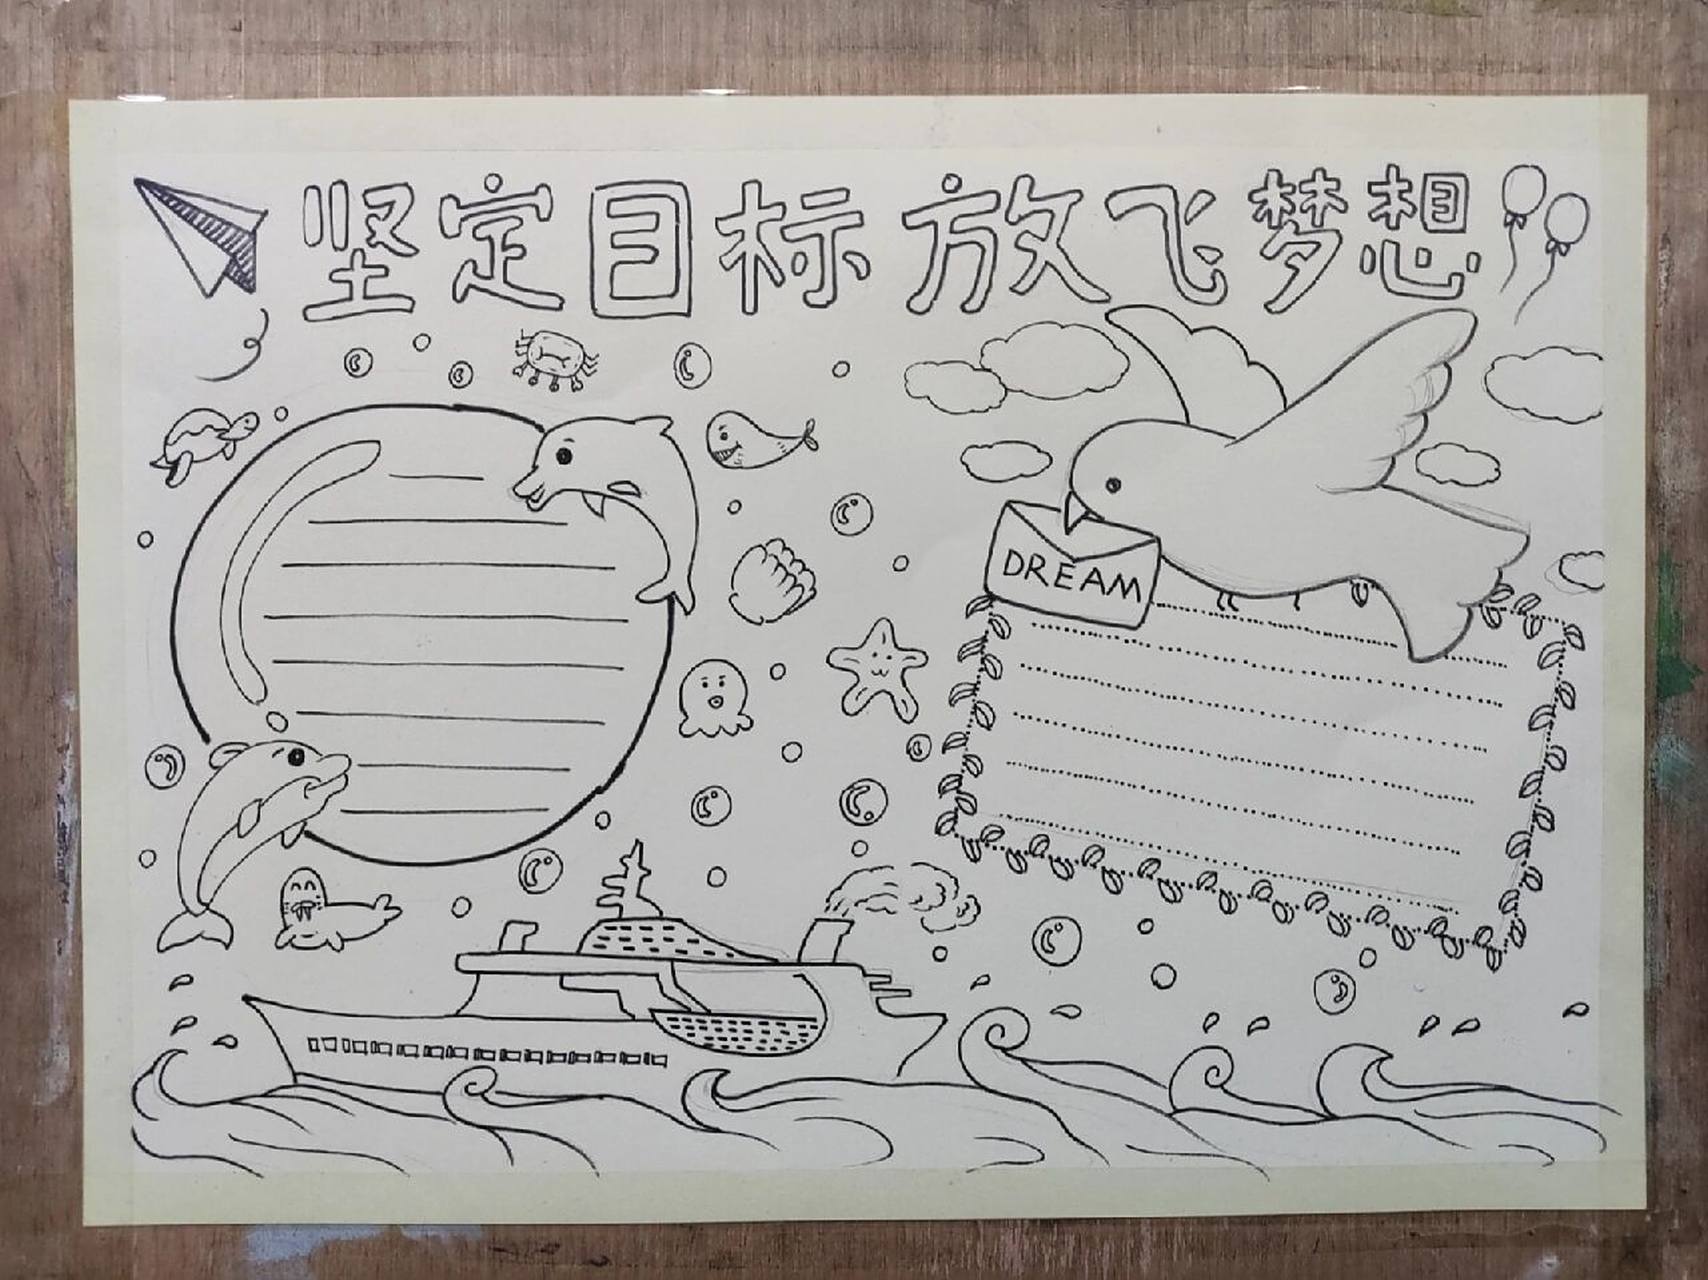 坚定目标 放飞梦想
DREAM